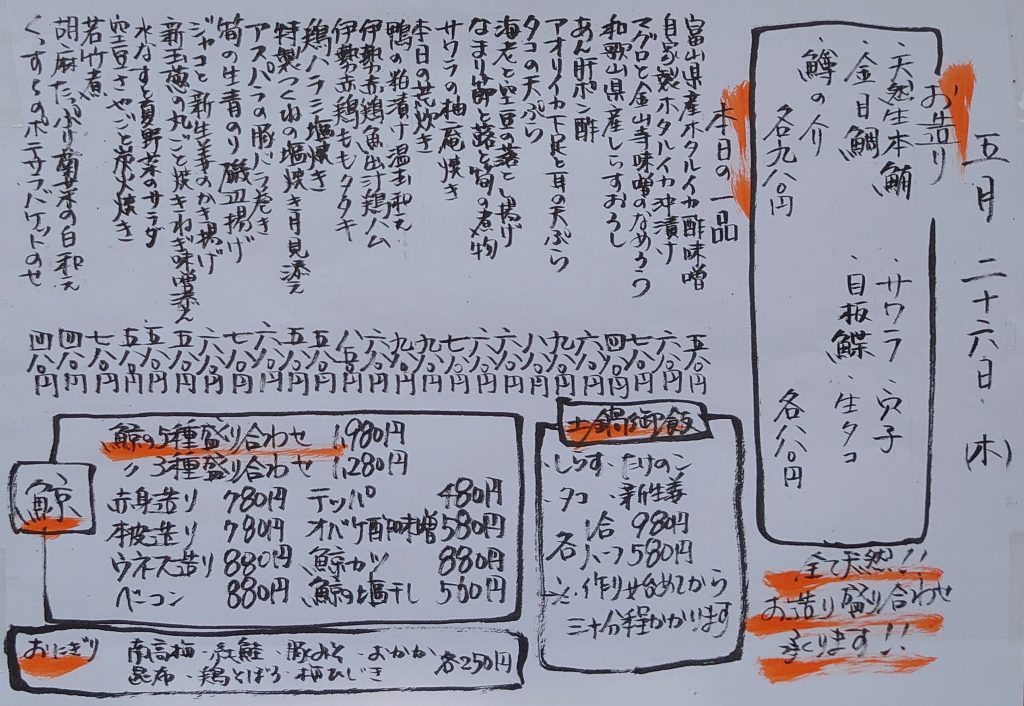 五月二十六日(木)
お造り
・天然生本鮪
・金目鯛
・鱒の介
各九八〇円
・サワラ・穴子
・目板鰈・生タコ
各八八〇円
全て天然!!
お造り盛り合わせ
承ります!!
本日の一品
富山県産ホタルイカ酢味噌
自家製ホタルイカ沖漬け
マグロと金山寺味噌のなめろう
和歌山県産しらすおろし
あん肝ポン酢
アオリイカ下足と耳の天ぷら
タコの天ぷら
海老と空豆の落とし揚げ
なまり節と蕗と筍の煮物
サワラの柚庵焼き
本日の荒炊き
鴨の粕漬け温玉和え
伊勢赤鶏魚出汁鶏ハム
伊勢赤鶏ももタタキ
鶏ハラミ塩焼き
特製つくねの塩焼き月見添え
アスパラの豚バラ巻き
筍の生青のり磯辺揚げ
ジャコと新生姜のかき揚げ
新玉葱の丸ごと焼きねぎ味噌添え
水なすと夏野菜のサラダ
空豆さやごと炭火焼き
若竹煮
胡麻たっぷり菊菜の白和え
ポテサラバケットのせ
五八〇円
六八〇円
七八〇円
四八〇円
六八〇円
六八〇円
八八〇円
六八〇円
六八〇円
七八〇円
九八〇円
九八〇円
六八〇円
八五〇円
五八〇円
五八〇円
六八〇円
七八〇円
六八〇円
五八〇円
五八〇円
五八〇円
七八〇円
四八〇円
四八〇円
土鍋御飯
・しらす・たけのこ
・タコ・新生姜
各 一合 980円
ハーフ 580円
※作り始めてから
三十分程かかります
鯨
鯨の5種盛り合わせ 1,980円
〃3種盛り合わせ 1,280円
赤身造り 780円 テッパ 480円
本皮造り 780円 オバケ酢味噌 580円
ウネス造り 880円 鯨カツ 880円
ベーコン 880円 鯨の塩干し 560円
おにぎり
南高梅・紅鮭・豚みそ・おかか
昆布・鶏そぼろ・梅ひじき
各250円